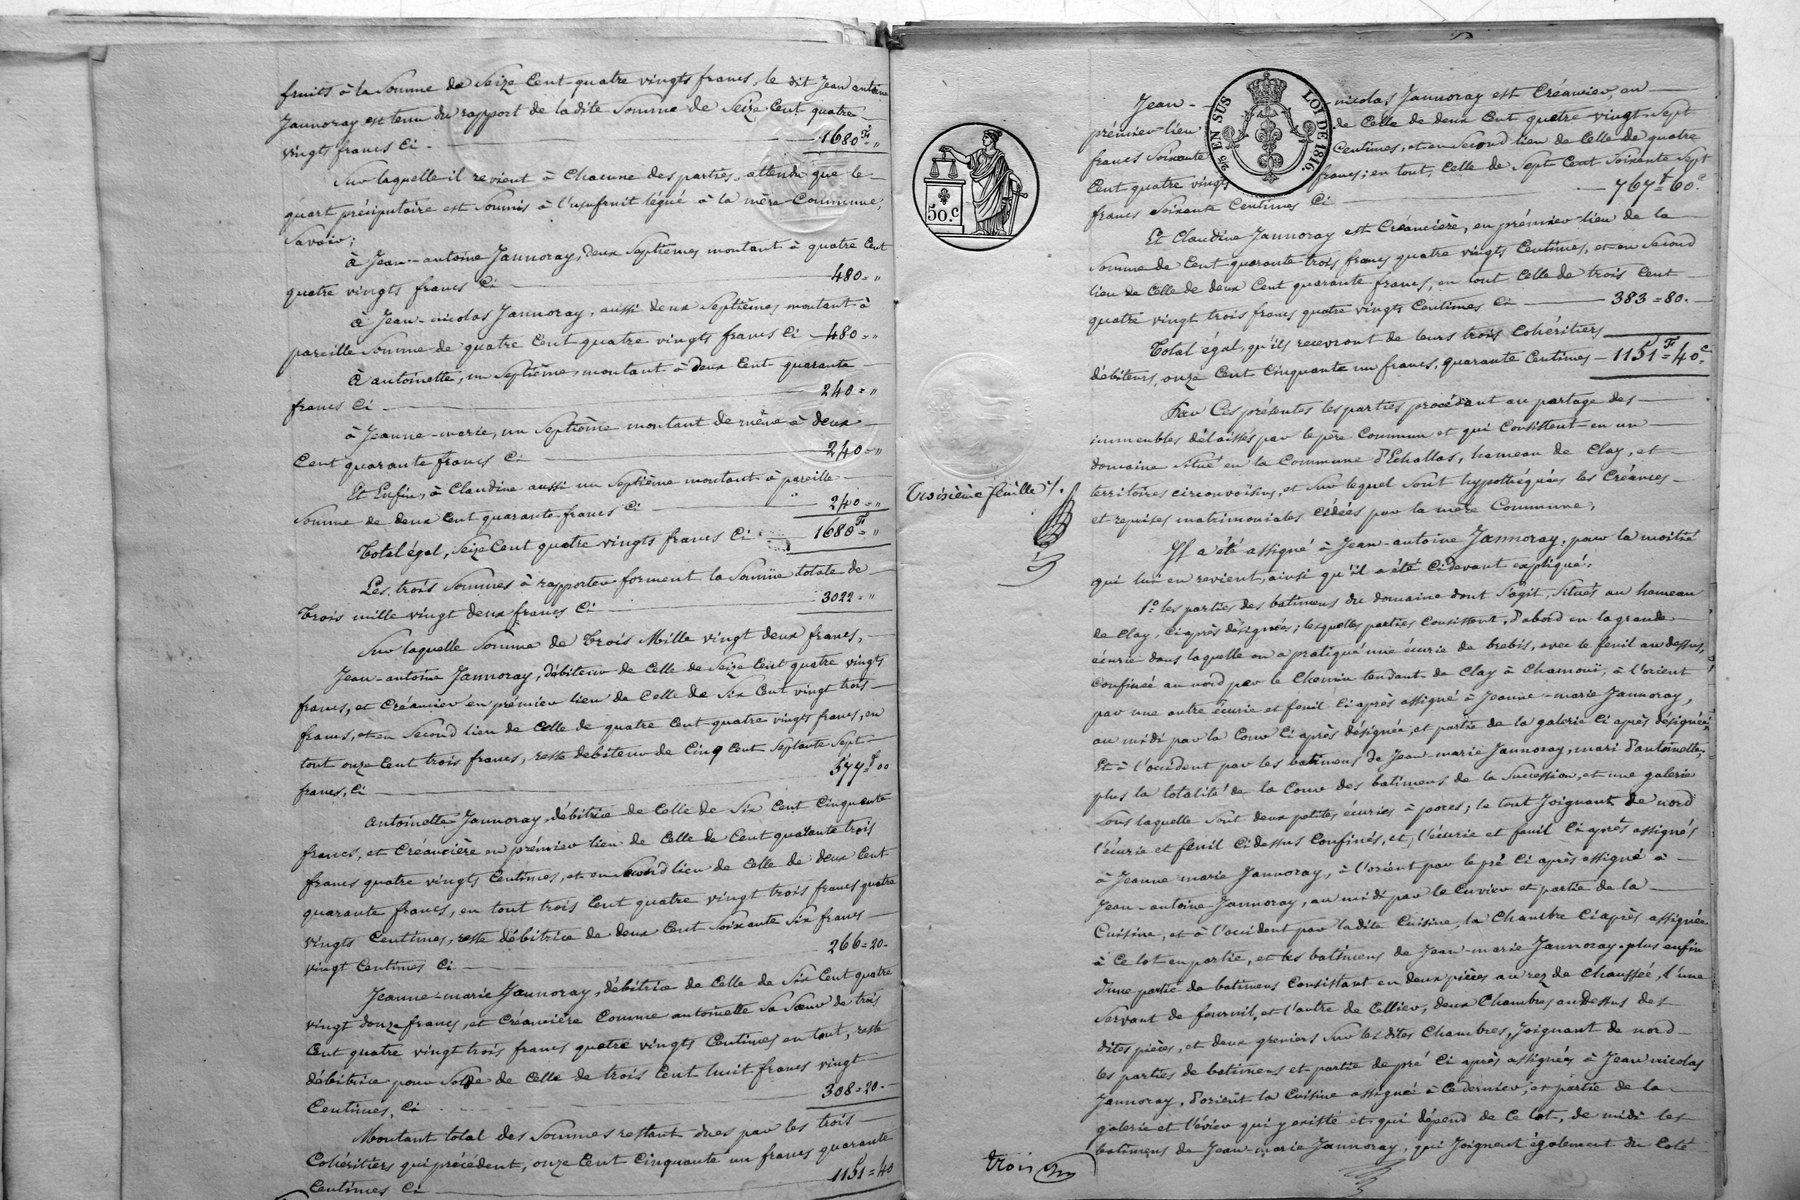 fruits à la Somme de Seize Cent quatre vingts francs, le dit Jean antoine
Jannoray est tenu du rapport de ladite Somme de Seize Cent quatre
vingts francs Ci 1680 Fs = "
Sur laquelle il revient à Chacune des parties, attendu que le
quart préciputaire est Soumis à l'usufruit légué à la mère Commune,
Savoir;
à Jean-antoine Jannoray, deux Septièmes montant à quatre Cent
quatre vingts francs Ci 480 = "
à Jean-nicolas Jannoray, aussi deux Septièmes montant à
pareille Somme de quatre Cent quatre vingts francs Ci 480 = "
à antoinette, un Septième, montant à deux Cent quarante
francs Ci 240 = "
à Jeanne-marie, un Septième montant de même à deux
Cent quarante francs Ci 240 = "
Et Enfin, à Claudine aussi un Septième montant à pareille
Somme de deux Cent quarante francs Ci 240 = "
Total égal, Seize Cent quatre vingts francs Ci 1680 F = "
Les trois Sommes à rapporter forment la Somme totale de
Trois mille vingt deux francs Ci 3022 = "
Sur laquelle Somme de Trois Mille vingt deux francs,
Jean-antoine Jannoray, débiteur de Celle de Seize Cent quatre vingts
francs, et Créancier en prémier lieu de Celle de Six Cent vingt trois
francs, et en Second lieu de Celle de quatre Cent quatre vingts francs, en
tout onze Cent trois francs, reste débiteur de Cinq Cent Septante Sept
francs, Ci 577 f = 00
antoinette Jannoray, débitrice de Celle de Six Cent Cinquante
francs, et Créancière en prémier lieu de Celle de Cent quarante trois
francs quatre vingts Centimes, et en Second lieu de Celle de deux Cent
quarante francs, en tout trois Cent quatre vingt trois francs quatre
vingts Centimes, reste débitrice de deux Cent Soixante Six francs
vingt Centimes Ci 266 = 20.
Jeanne-marie Jannoray, débitrice de Celle de Six Cent quatre
vingt douze francs, et Créancière Comme antoinette Sa Sœur de trois
Cent quatre vingt trois francs quatre vingts Centimes en tout, reste
débitrice pour Solde de Celle de trois Cent huit francs vingt
Centimes, Ci 308 = 20.
Montant total des Sommes restant dues par les trois
Cohéritiers qui précédent, onze Cent Cinquante un francs quarante
Centimes Ci 1151 = 40
50. C
Troisième feuille
trois
25 EN SUS LOI DE 1816
Jean- nicolas Jannoray est Créancier, en
prémier lieu de Celle de deux Cent quatre vingt Sept
francs Soixante Centimes, et en Second lieu de Celle de quatre
Cent quatre vingts francs; en tout, Celle de Sept Cent Soixante Sept
francs Soixante Centimes Ci 767 f = 60 c
Et Claudine Jannoray est Créancière, en prémier lieu de la
Somme de Cent quarante trois francs quatre vingts Centimes, et en Second
lieu de Celle de deux Cent quarante francs, en tout Celle de trois Cent
quatre vingt trois francs quatre vingts Centimes Ci 383 = 80.
Total égal, qu'ils recevront de leurs trois Cohéritiers
débiteurs, onze Cent Cinquante un francs, quarante Centimes 1151 F = 40 c
Par Ces présentes les parties procédant au partage des
immeubles délaissés par le père Commun et qui Consistent en un
domaine Situé en la Commune d'Echallas, hameau de Clay, et
territoires circonvoisins, et Sur lequel Sont hypothéquées les Créances
et reprises matrimoniales cédées par la mère Commune,
Il a été assigné à Jean-antoine Jannoray, pour la moitié
qui lui en revient, ainsi qu'il a été Cidevant expliqué:
1.º les parties des batimens du domaine dont S'agit, Situés au hameau
de Clay, ciaprès désignées; lesquelles parties Consistent, d'abord en la grande
écurie dans laquelle on a pratiqué une écurie de brebis, avec le fenil au dessus,
Confinée au nord par le Chemin tendant de Clay à Chamoui, à l'orient
par une autre écurie et fenil Ci après assigné à Jeanne-marie Jannoray,
au midi par la Cour Ci après désignée, et partie de la galerie Ci après désignée;
Et à l'occident par les batimens de Jean-marie Jannoray, mari d'antoinette;
plus la totalité de la Cour des batimens de la Succession, et une galerie
Sous laquelle Sont deux petites écuries à porcs; le tout Joignant de nord
l'écurie et fenil Cidessus Confinés, et, l'écurie et fenil Ci après assignés
à Jeanne marie Jannoray, à l'orient par le pré Ci après assigné à
Jean-antoine Jannoray, au midi par le Cuvier et partie de la
Cuisine, et à l'occident par ladite Cuisine, la Chambre Ci après assignée
à Ce lot en partie, et les batimens de Jean-marie Jannoray, plus enfin
d'une partie de batimens Consistant en deux pièces au rez de chaussée, l'une
Servant de fournil, et l'autre de Cellier, deux Chambres au Dessus des
dites pièces, et deux greniers Sur les dites Chambres, Joignant de nord
les parties de batimens et partie de pré Ci après assignés à Jean nicolas
Jannoray, d'orient la Cuisine assignée à Ce dernier, et partie de la
galerie et l'évier qui y existe et qui dépend de Ce lot, de midi les
batimens de Jean-marie Jannoray, qui Joignent également du Coté